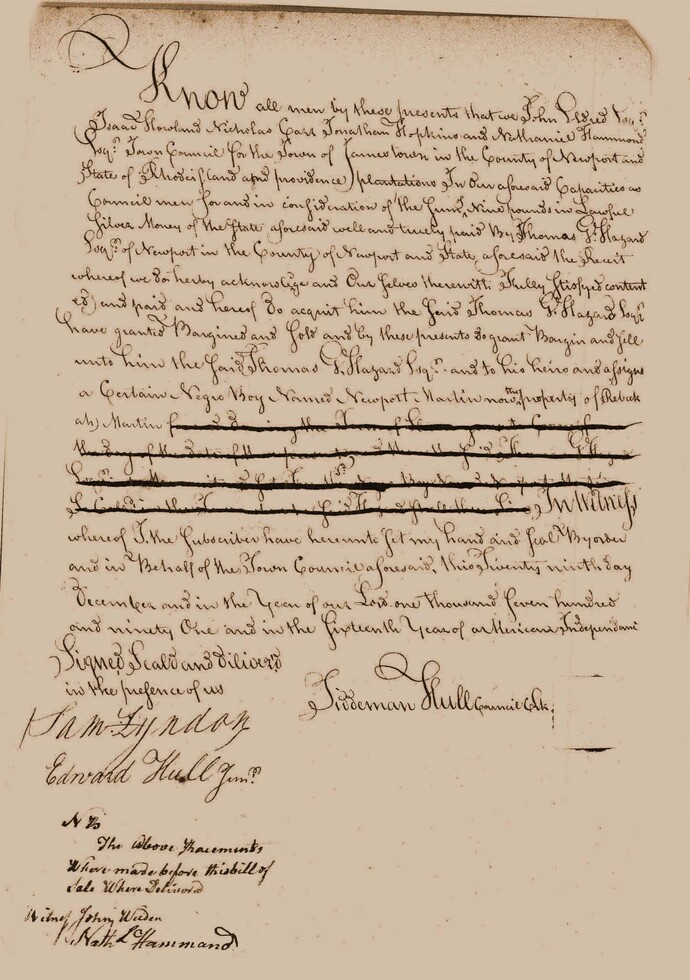 Know all men by these presents that we John Eldred Esqr.
Isaac Howland Nicholas Carr Jonathan Hopkins and Nathaniel Hammond
Esqr. Town Council for the Town of Jamestown in the County of Newport and
State of Rhodeisland and providence plantations In Our aforesaid Capacities as
Council men for and in consideration of the Sum Nine pounds in Lawful
Silver Money of the State aforesaid well and truely paid By Thomas G. Hazard
Esqr. of Newport in the County of Newport and State aforesaid the Receit
whereof we do herby acknowlige and Our Selves therewith Fulley Stisfyed content
ed and paid and hereof Do acquit him the Said Thomas G. Hazard Esqr.
have granted Bargined and Sold and by these presents do grant Bargin and Sell
unto him the Said Thomas G. Hazard Esqr. and to his heirs and assigns
a Certain Negro Boy Named Newport Martin now the property of Rebeck
ah Martin
In Witness
whereof I the Subscriber have hereunto Set my hand and Seal By order
and in Behalf of the Town Council aforesaid, this Twenty ninth day
December and in the Year of our Lord one thousand Seven hundred
and ninety One and in the Sixteenth Year of american Independani
Signed Seald and Diliver'd
in the presence of us
Tiddeman Hull Council Clk.
Sam Lyndon
Edward Hull Junr.
NB
The above Racements
Where made before this bill of
Sale Where Deliverd
Witnes John Weeden
Nathl. Hammand